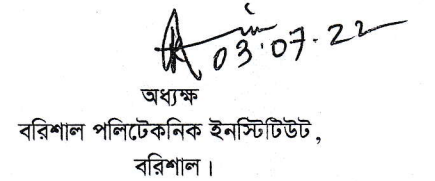 03.07.22
অধ্যক্ষ
বরিশাল পলিটেকনিক ইনস্টিটিউট,
বরিশাল।